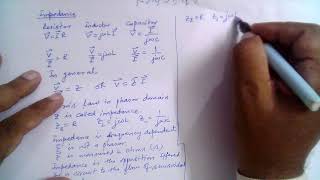 Impedance
Resistor Inductor Capacitor
V = I R V = jωL I V = I / jωC
V/I = R V/I = jωL V/I = 1/jωC
In general
V/I = Z or V = Z I
law in phasor domain
Z is called impedance
Z_R = R Z_L = jωL Z_C = 1/jωC
Impedance is frequency dependent
is not a phasor
is measured in ohms (Ω)
Impedance is the opposition offered
circuit to the flow of sinusoidal
Z_R = R Z_L = jωL